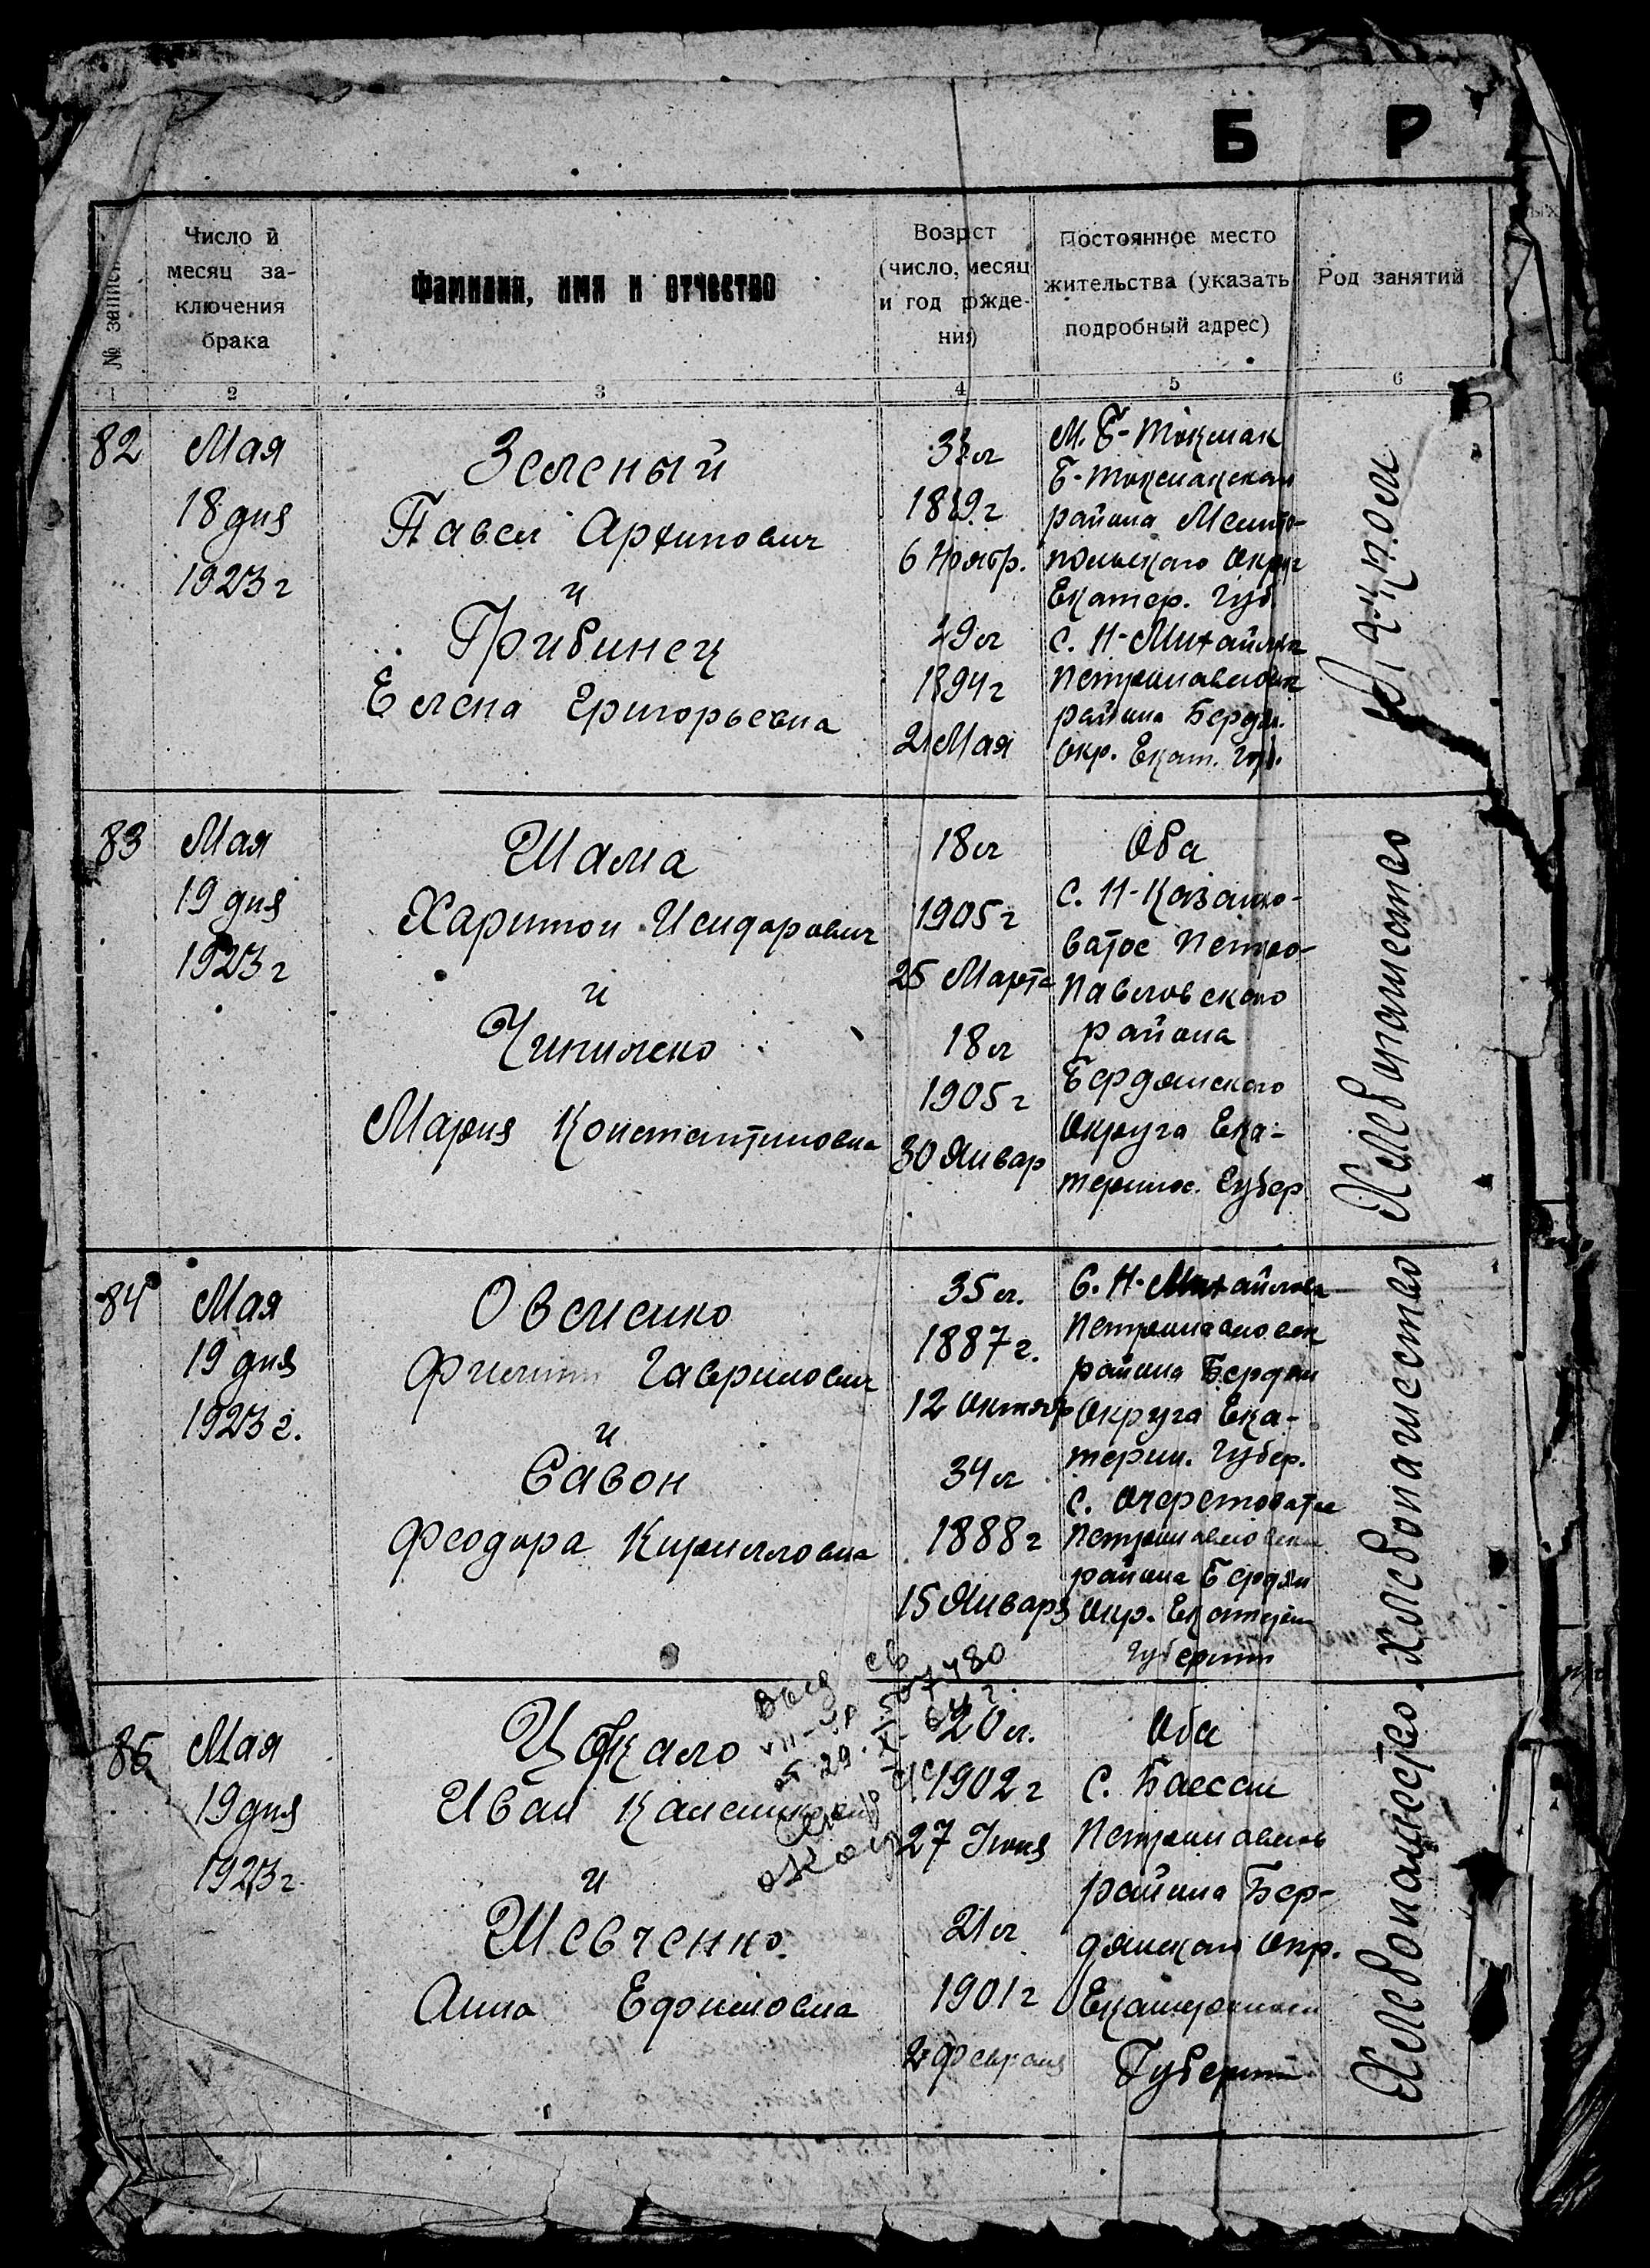 Б Р
№ записи
Число и
месяц за-
ключения
брака
Фамилия, имя и отчество
Возрст
(число, месяц
и год рждe-
ния)
Постоянное место
жительства (указать
подробный адрес)
Род занятий
1 2 3 4 5 6
82
Мая
18 дня
1923 г
Зеленый
Павел Архипович
и
Грибинец
Елена Григорьевна
6 Ноябр.
29 л
1894 г
21 Мая
М. Б-Токмак
Б-Токмакском
района Мелито-
польского Округ
Екатер. Губ.
с. Н-Михайловк
Петропавловск
района Бердян.
Окр. Екат. Губ.
83
Мая
19 дня
1923 г
Шама
Харитон Исидорович
и
Чипиленко
Мария Константиновна
18 л
1905 г
25 Марта
18 л
1905 г
30 Январ
Оба
с. Н-Казанко-
ватое Петро-
павловского
района
Бердянского
Округа Ека-
теринос. Губер
Хлебопашество
84
Мая
19 дня
1923 г.
Овсиенко
Филипп Гаврилович
и
Савон
Феодора Кирилловна
35 л.
1887 г.
12 Октябр
34 л
1888 г
15 Января
С. Н-Михайловк
Петропавловск
района Бердян
Округа Ека-
терин. Губер.
с. Очеретоватое
Петропавловск
района Бердян
Окр. Екатерин
Губернии
Хлебопашество
85
Мая
19 дня
1923 г.
Цокало
Иван
и
Шевченко
Анна Ефимовна
20 л.
1902 г
27 Июня
21 л
1901 г
2 Февраля
Оба
с. Басани
Петропавлов
района Бер-
дянского Окр.
Екатеринос
Губернии
Хлебопашество